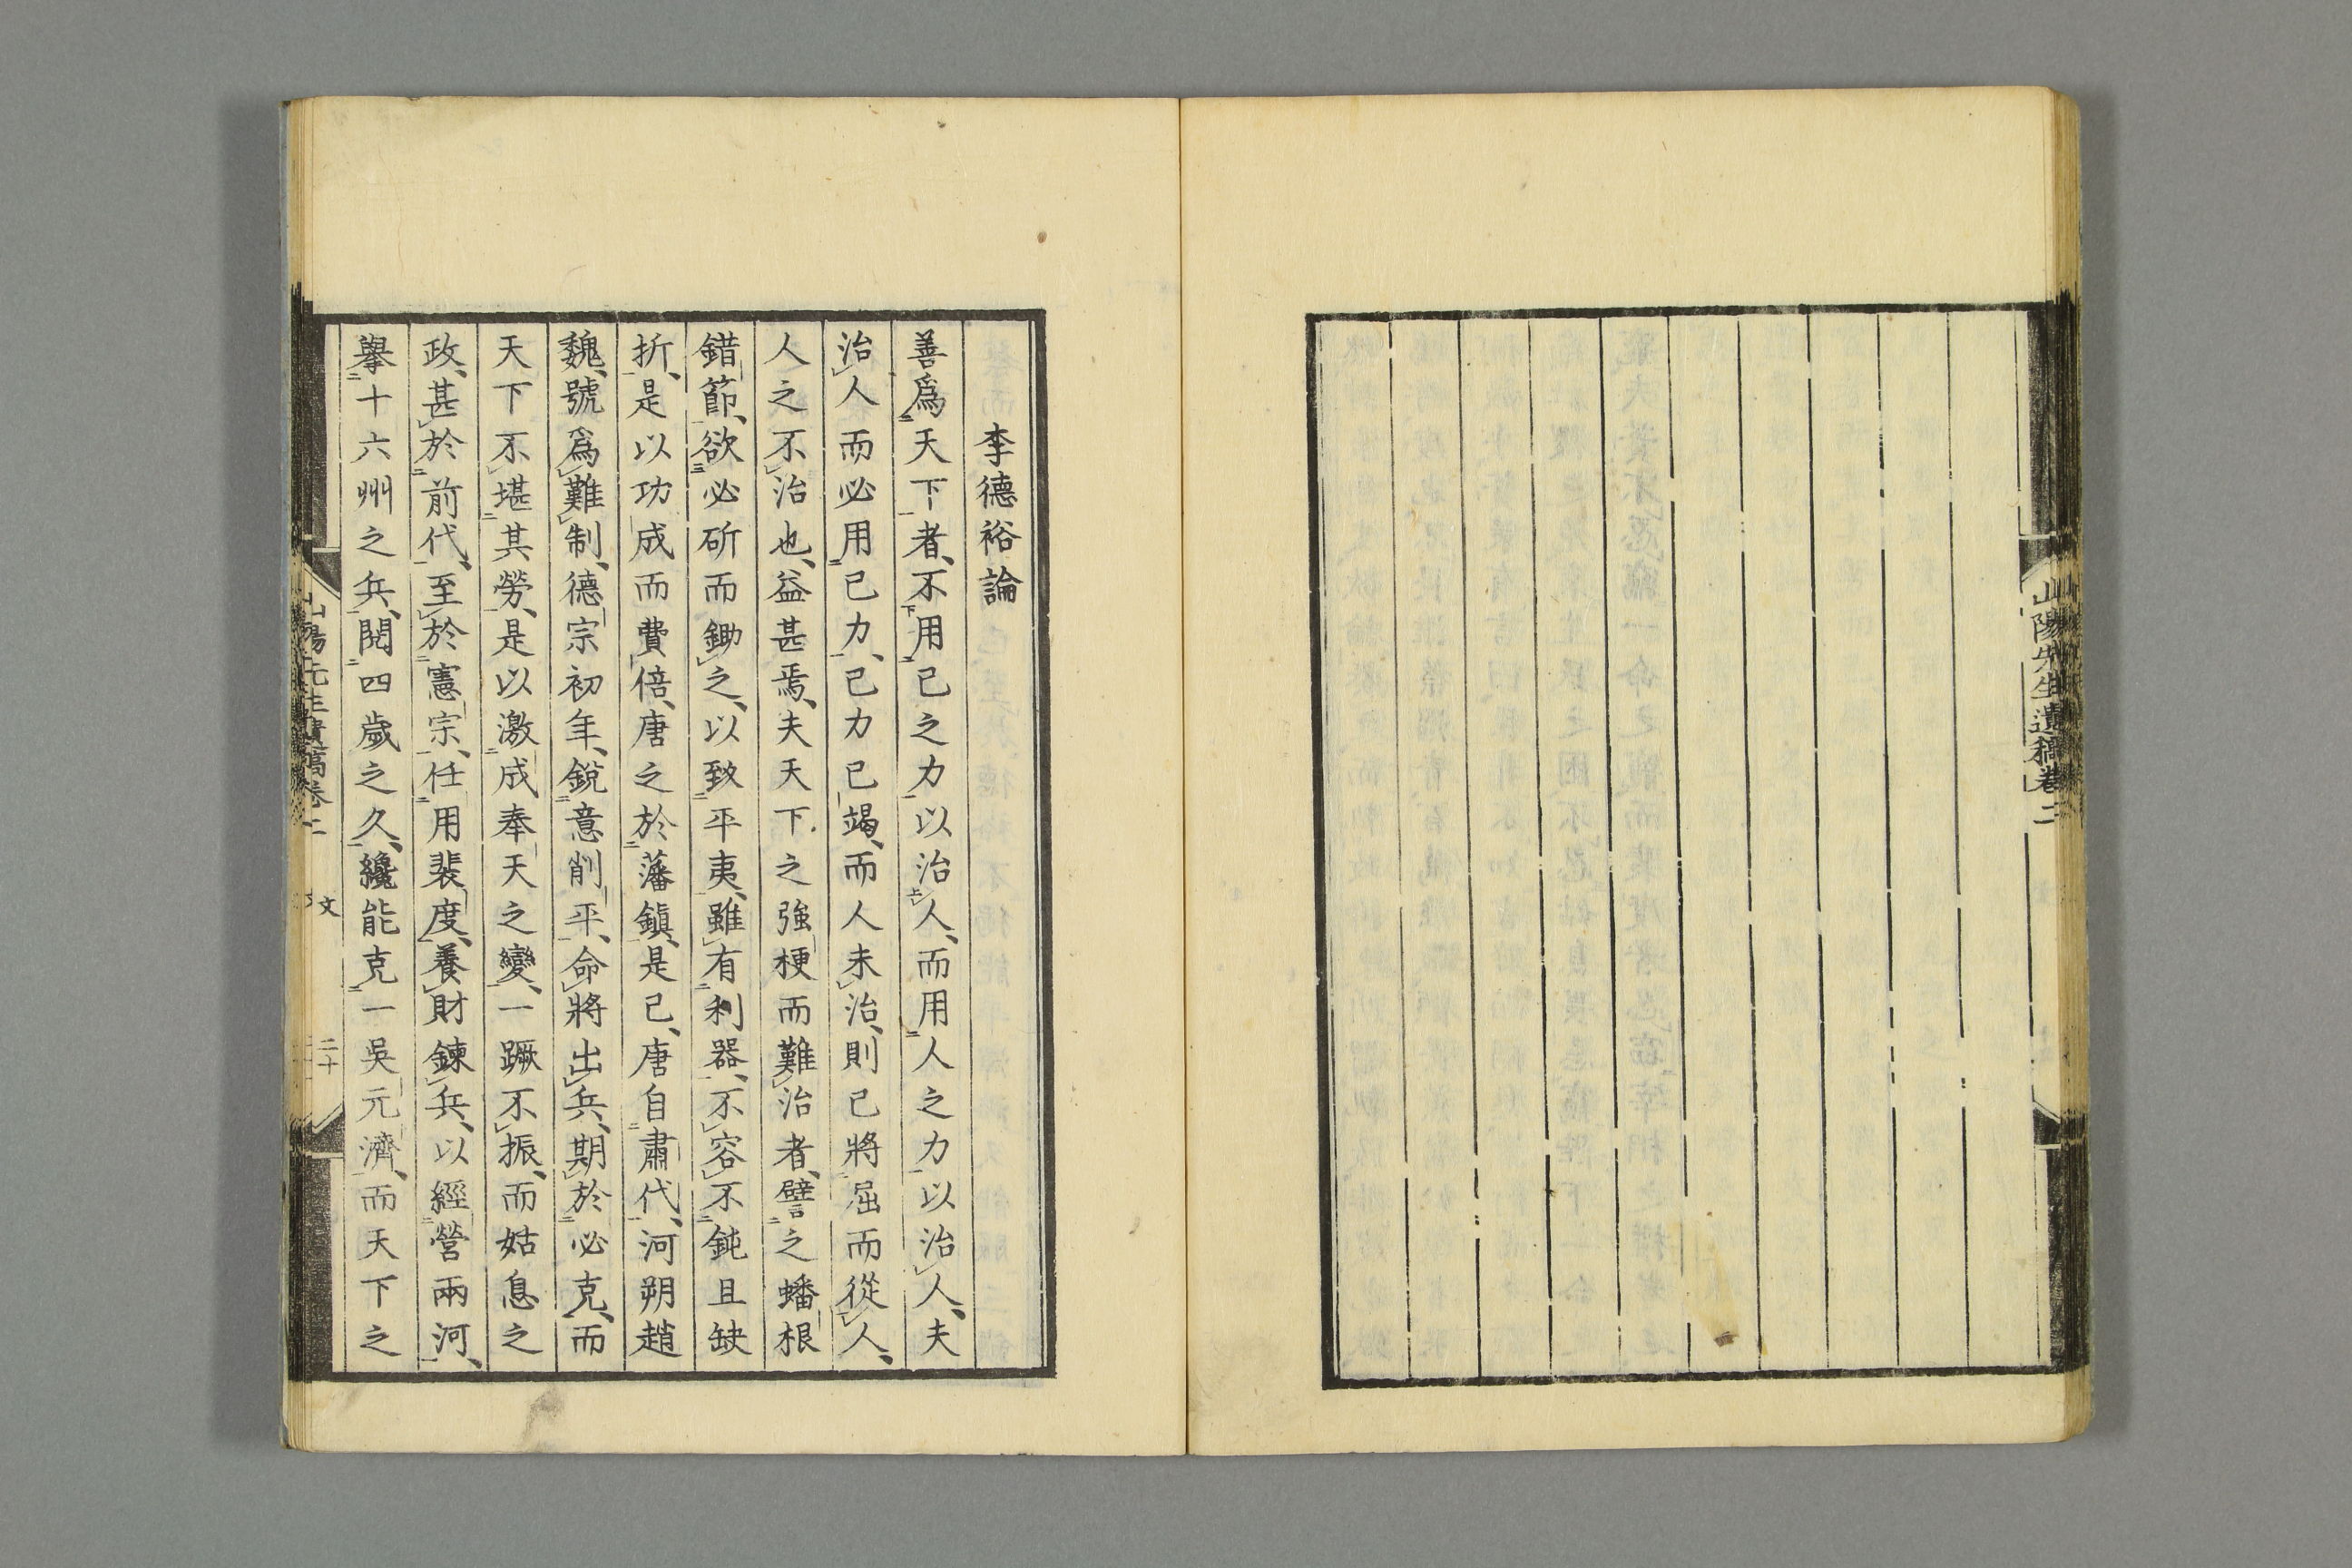 山陽先生遺稿卷二
李德裕論
善爲天下者、不用己之力以治人、而用人之力以治人、夫
治人而必用己力、己力已竭、而人未治、則己將屈而從人、
人之不治也、益甚焉、夫天下之強梗而難治者、譬之蟠根
錯節、欲必斫而鋤之、以致平夷、雖有利器、不容不鈍且缺
折、是以功成而費倍、唐之於藩鎮、是已、唐自肅代、河朔趙
魏、號爲難制、德宗初年、銳意削平、命將出兵、期於必克、而
天下不堪其勞、是以激成奉天之變、一蹶不振、而姑息之
政、甚於前代、至於憲宗、任用裴度、養財鍊兵、以經營兩河、
擧十六州之兵、閱四歲之久、纔能克一吳元濟、而天下之
山陽先生遺稿卷二 文 二十